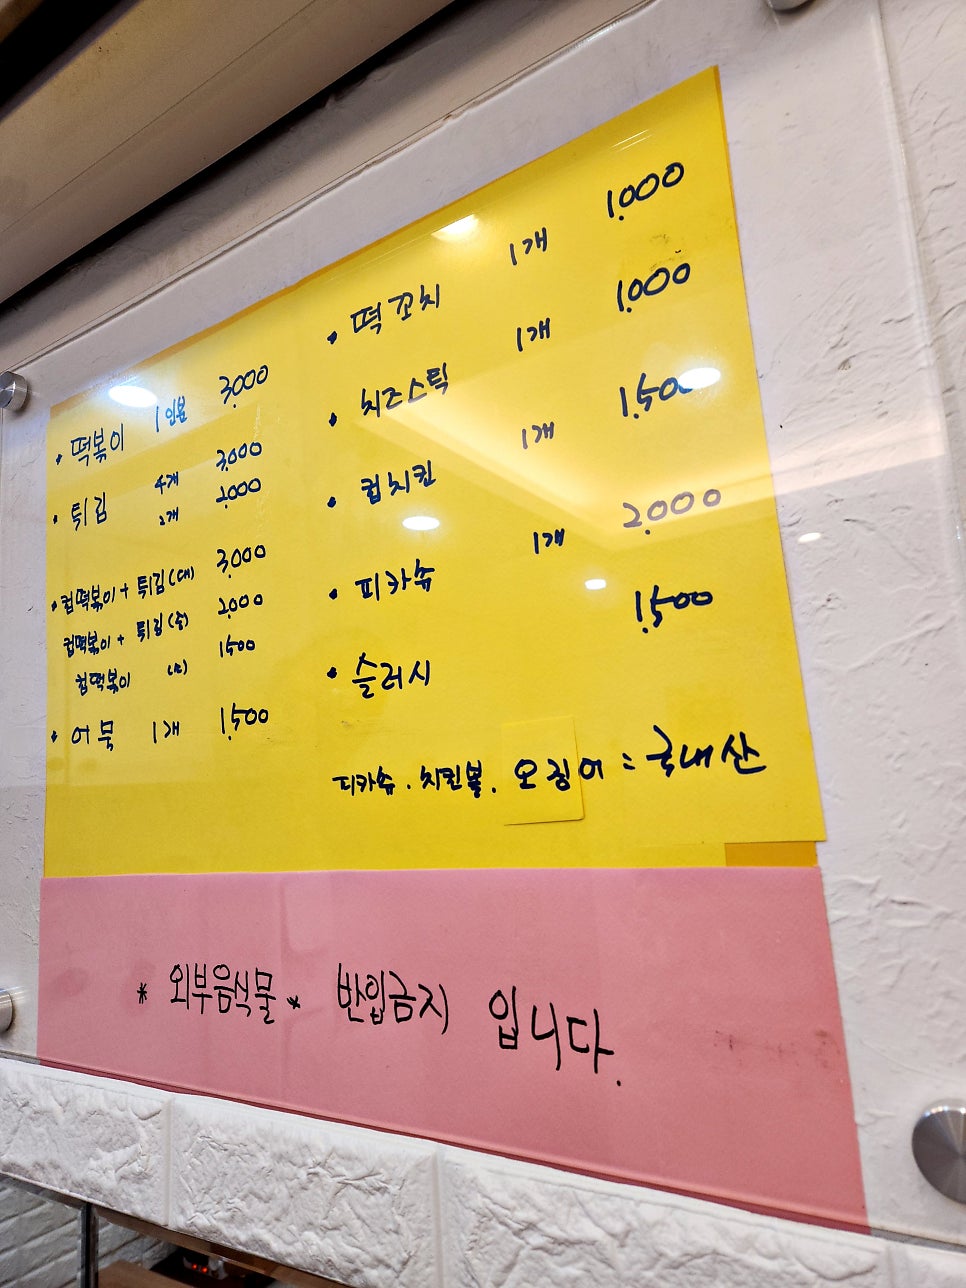 • 떡볶이 1인분 3.000
• 튀김 4개 3.000
2개 2.000
• 컵떡볶이 + 튀김(대) 3.000
컵떡볶이 + 튀김(중) 2.000
컵떡볶이 (소) 1500
• 어묵 1개 1.500
• 떡꼬치 1개 1.000
• 치즈스틱 1개 1.000
• 컵치킨 1개 1.500
• 피카츄 1개 2.000
• 슬러시 1.500
피카츄. 치킨볼. 오징어 = 국내산
* 외부음식물 * 반입금지 입니다.